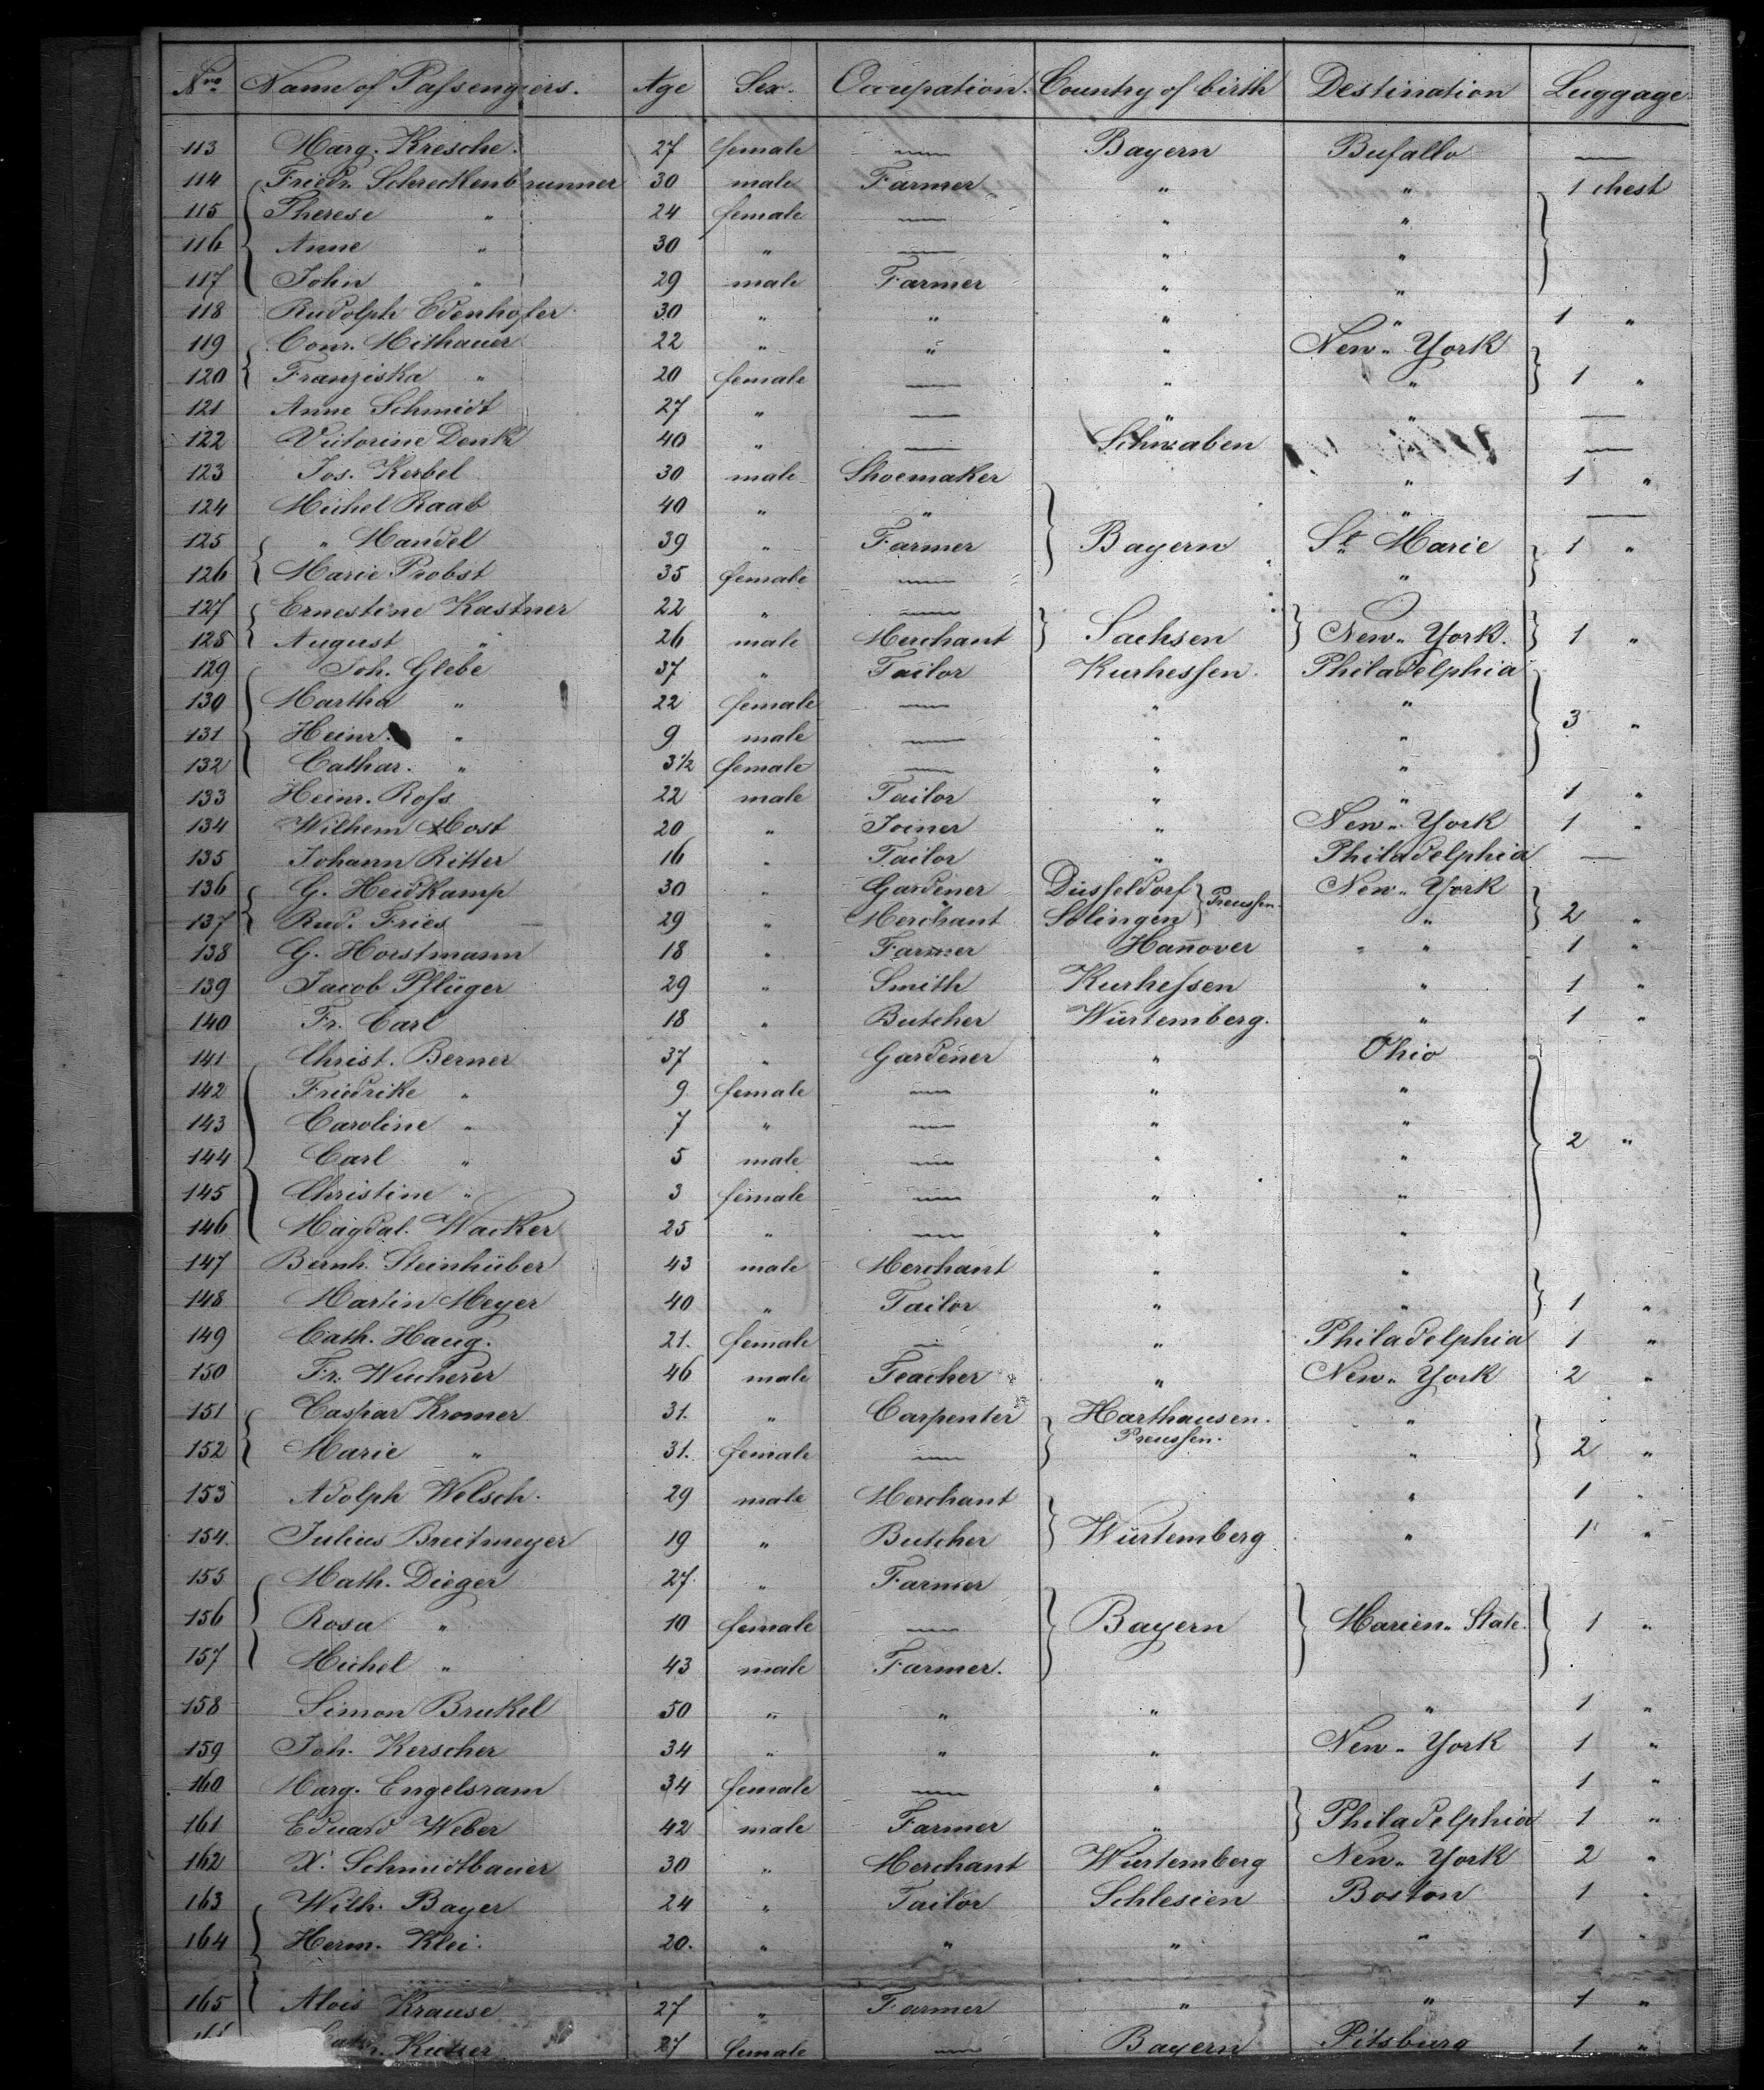 Nro Name of Passengiers. Age Sex. Occupation. Country of birth Destination Luggage
113 Marg. Kresche. 27 female — Bayern Bufallo —
114 Friedr. Schrecklenbrunner 30 male Farmer " " 1 chest
115 Therese " 24 female — " "
116 Anne " 30 " — " "
117 John " 29 male Farmer " "
118 Rudolph Edenhofer 30 " " " " 1 "
119 Conr. Mithauer 22 " " " New-York
120 Franziska " 20 female — " " 1 "
121 Anne Schmidt 27 " — " " —
122 Victorine Denk 40 " — Schwaben —
123 Jos. Kerbel 30 male Shoemaker " 1 "
124 Michel Raab 40 " " " —
125 " Mandel 39 " Farmer Bayern St. Marie 1 "
126 Marie Probst 35 female — "
127 Ernestine Kastner 22 " —
128 August " 26 male Merchant Sachsen New-York. 1 "
129 Joh. Glebe 37 " Tailor Kurhessen. Philadelphia
130 Martha " 22 female — " "
131 Heinr. " 9 male — " " 3 "
132 Cathar. " 3½ female — " "
133 Heinr. Ross 22 male Tailor " " 1 "
134 Wilhem Most 20 " Joiner " New-York 1 "
135 Johann Ritter 16 " Tailor " Philadelphia —
136 G. Heidkamp 30 " Gardener Düsseldorf Preussen. New-York
137 Rud. Fries 29 " Merchant Solingen " 2 "
138 G. Horstmann 18 " Farmer Hanover " 1 "
139 Jacob Pflüger 29 " Smith Kurhessen " 1 "
140 Fr. Carl 18 " Butcher Würtemberg. " 1 "
141 Christ. Berner 37 " Gardener " Ohio
142 Friedrike " 9 female — " "
143 Caroline " 7 " — " "
144 Carl " 5 male — " " 2 "
145 Christine " 3 female — " "
146 Magdal. Wacker 25 " — " "
147 Bernh. Steinhüber 43 male Merchant " "
148 Martin Meyer 40 " Tailor " " 1 "
149 Cath. Haug. 21. female — " Philadelphia 1 "
150 Fr. Wucherer 46 male Teacher " New-York 2 "
151 Caspar Kromer 31. " Carpenter Harthausen. "
152 Marie " 31. female — Preussen. " 2 "
153 Adolph Welsch. 29 male Merchant " 1 "
154. Julius Breitmeyer 19 " Butcher Würtemberg " 1 "
155 Math. Dieger 27. " Farmer
156 Rosa " 10 female — Bayern Marien-State. 1 "
157 Michel " 43 male Farmer.
158 Simon Brukel 50 " " " " 1 "
159 Joh. Kerscher 34 " " " New-York 1 "
160 Marg. Engelsram 34 female — " 1 "
161 Eduard Weber 42 male Farmer " Philadelphia 1 "
162 X. Schmidtbauer 30 " Merchant Würtemberg New-York 2 "
163 Wilh. Bayer 24 " Tailor Schlesien Boston 1 "
164 Herm. Klei. 20. " " " " 1 "
165 Alois Krause 27 " Farmer " " 1 "
Kutser 27 female — Bayern Pitsburg 1 "